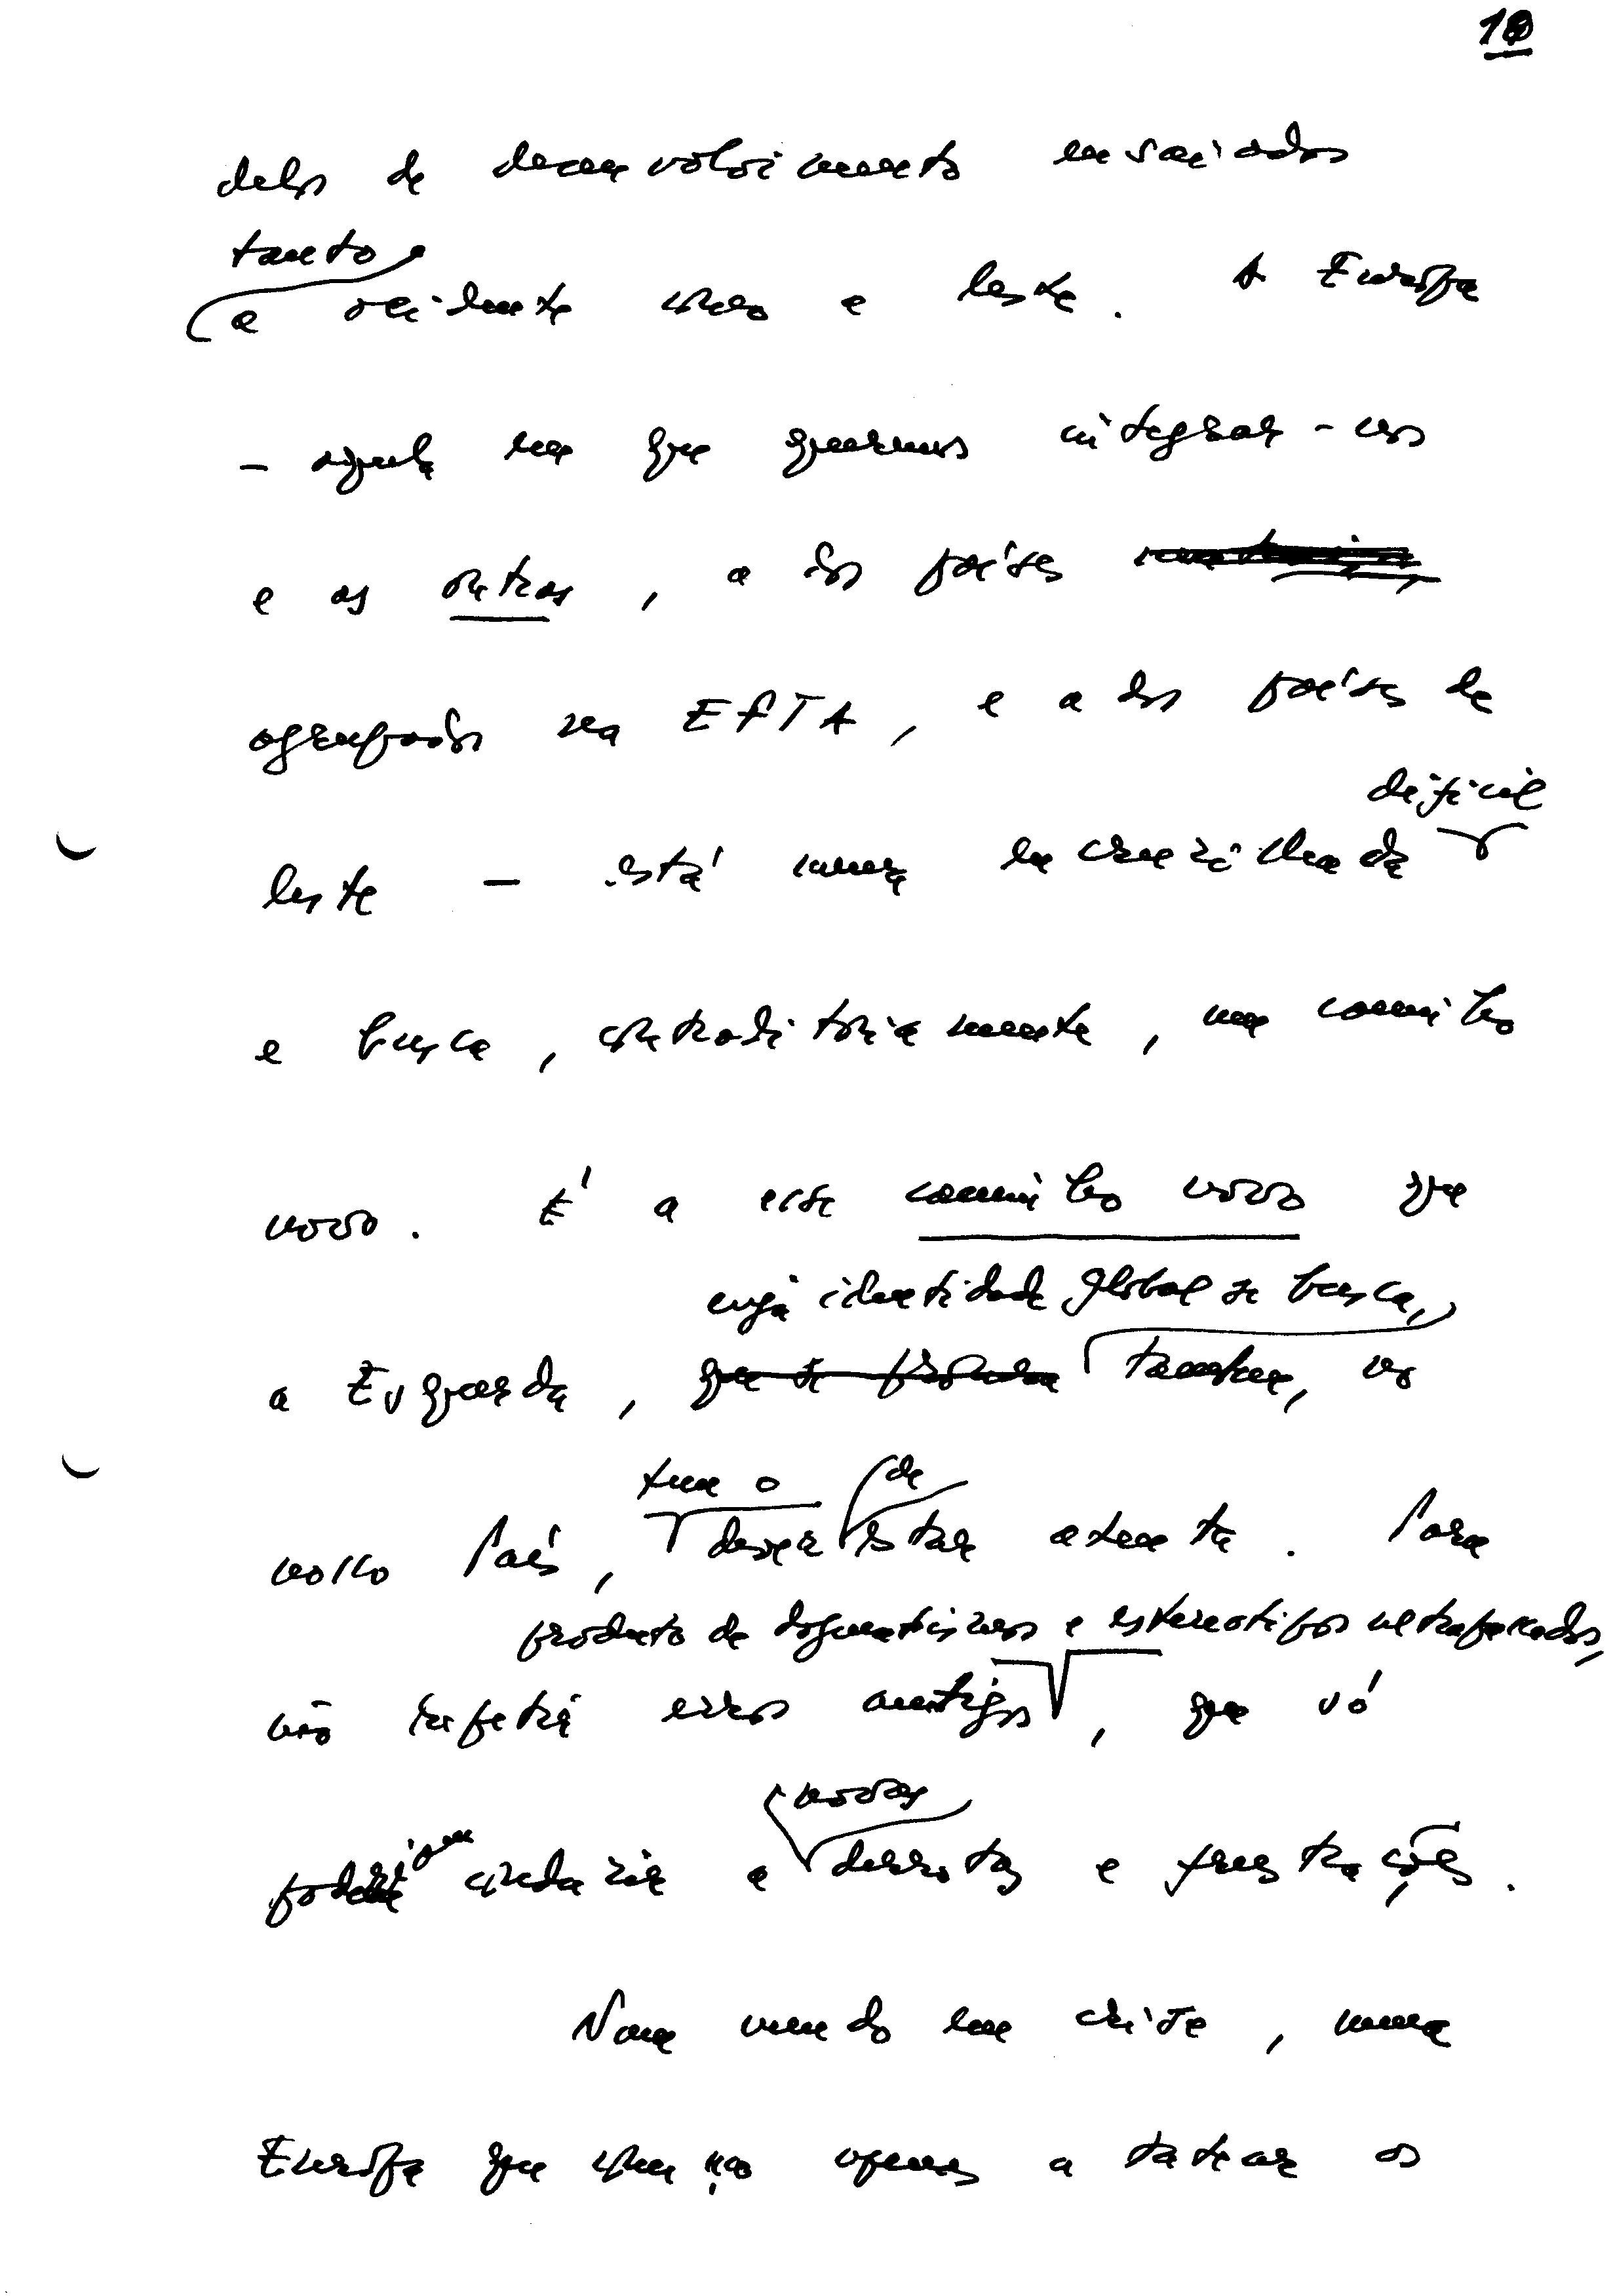 10
delos de desenvolvimento ensaiados
tanto
a ocidente como a leste. A Europa
- aquela em que queremos integrar-nos
e as outras, a dos países
agrupados na EFTA, e a dos países de
difícil
leste - está numa encruzilhada
e busca, contraditoriamente, um caminho
novo. É a esse caminho novo que
cuja identidade global se busca,
a Esquerda, que se procura também, no
nosso País, tem o dever de estar atenta. Para
produto de dogmatismos e estereotipos ultrapassados,
não repetir erros antigos, que só
novas
poderiam conduzir a derrotas e frustrações.
Num mundo em crise, numa
Europa que começa apenas a tatear os